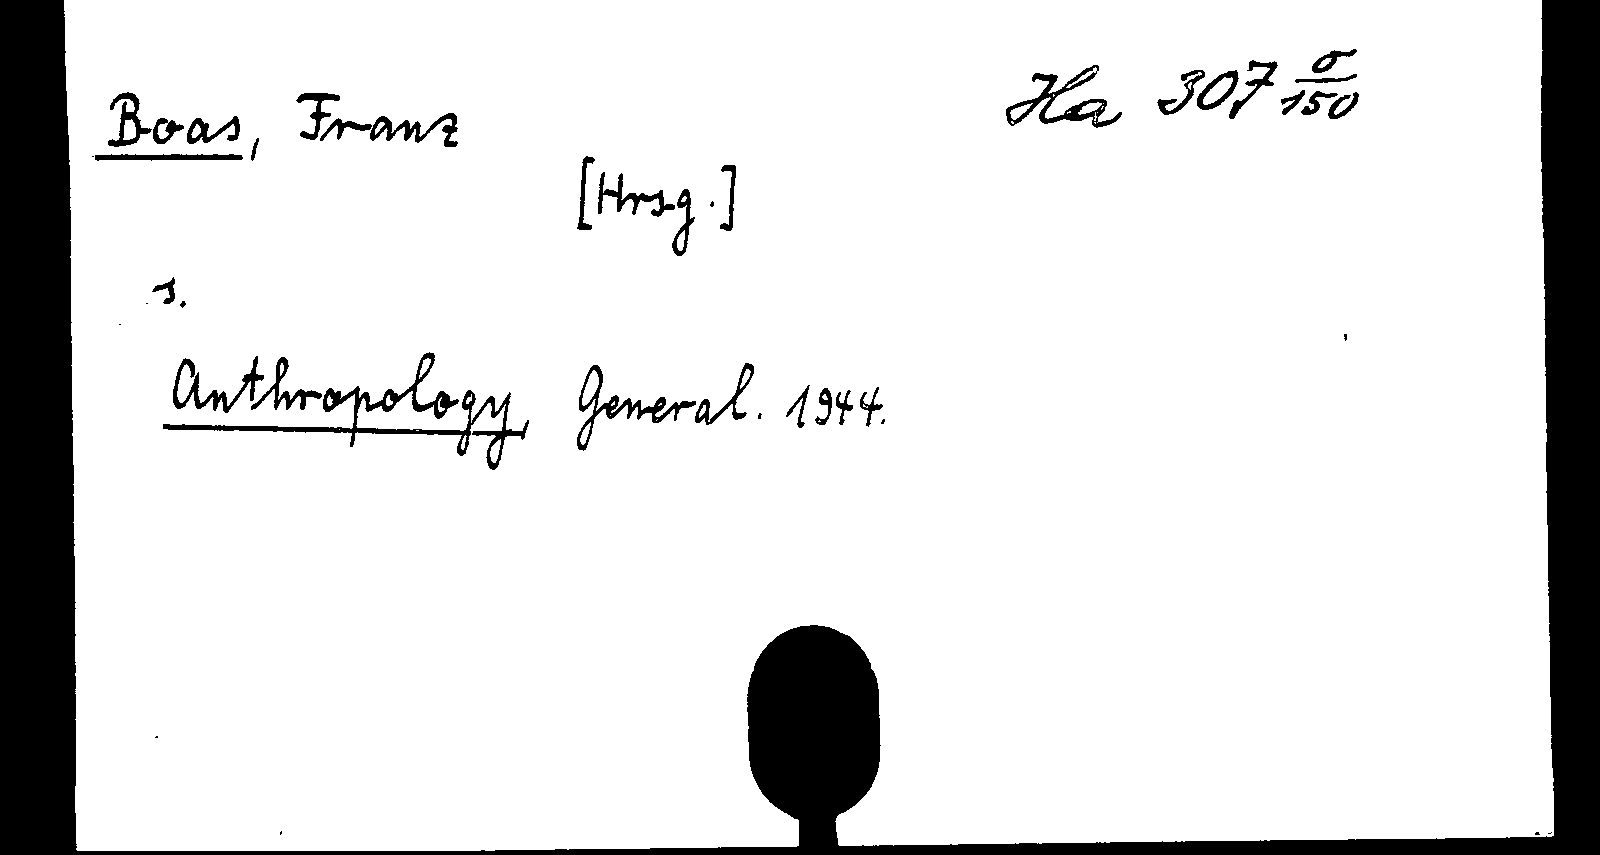 Ha 307 σ/150
Boas, Franz
[Hrsg.]
s.
Anthropology, General. 1944.